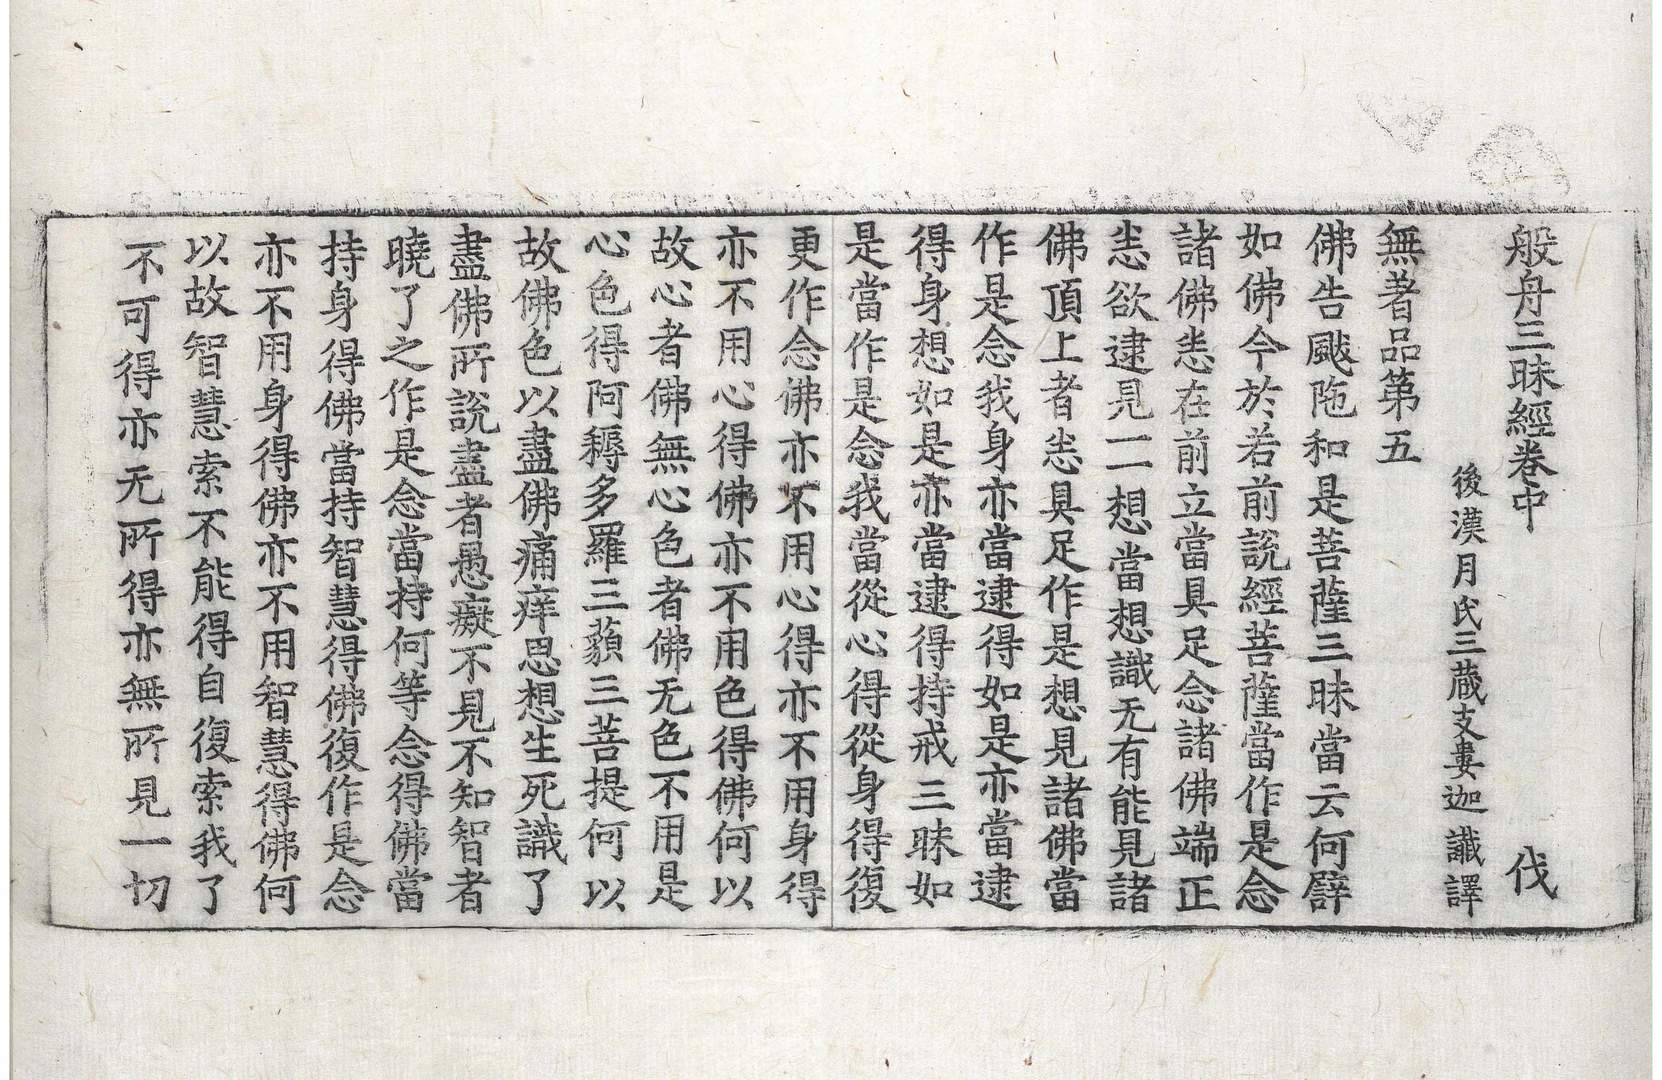 般舟三昧經卷中 伐
後漢月氏三藏支婁迦讖譯
無著品第五
佛告颰陁和是菩薩三昧當云何譬
如佛今於若前說經菩薩當作是念
諸佛悉在前立當具足念諸佛端正
悉欲逮見一一想當想識无有能見諸
佛頂上者悉具足作是想見諸佛當
作是念我身亦當逮得如是亦當逮
得身想如是亦當逮得持戒三昧如
是當作是念我當從心得從身得復
更作念佛亦不用心得亦不用身得
亦不用心得佛亦不用色得佛何以
故心者佛無心色者佛无色不用是
心色得阿耨多羅三藐三菩提何以
故佛色以盡佛痛痒思想生死識了
盡佛所說盡者愚癡不見不知智者
曉了之作是念當持何等念得佛當
持身得佛當持智慧得佛復作是念
亦不用身得佛亦不用智慧得佛何
以故智慧索不能得自復索我了
不可得亦无所得亦無所見一切